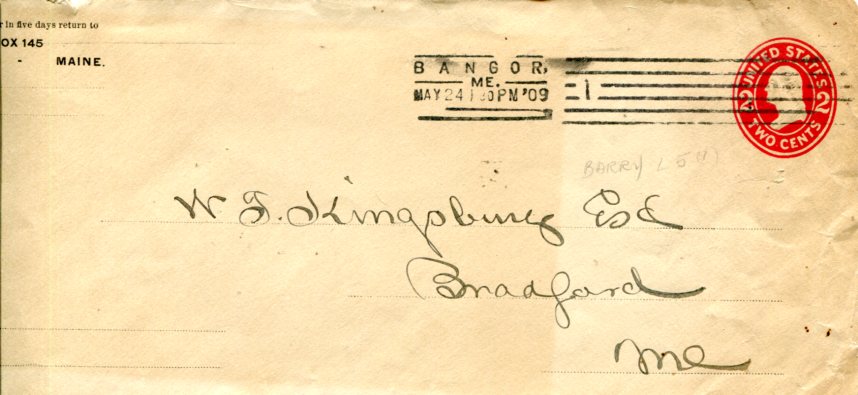 r in five days return to
OX 145
- MAINE.
BANGOR,
ME.
MAY 24 1 30 PM '09
1
UNITED STATES
2 2
TWO CENTS
BARRY L5
W. F. Kingsbury Esq
Bradford
Me